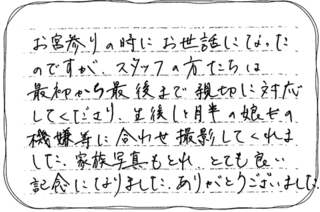 お宮参りの時にお世話になった
のですが、スタッフの方たちは
最初から最後まで親切に対応
してくださり、生後1ヶ月半の娘の
機嫌等に合わせ撮影してくれま
した。家族写真もとれ、とても良い
記念になりました。ありがとうございました。